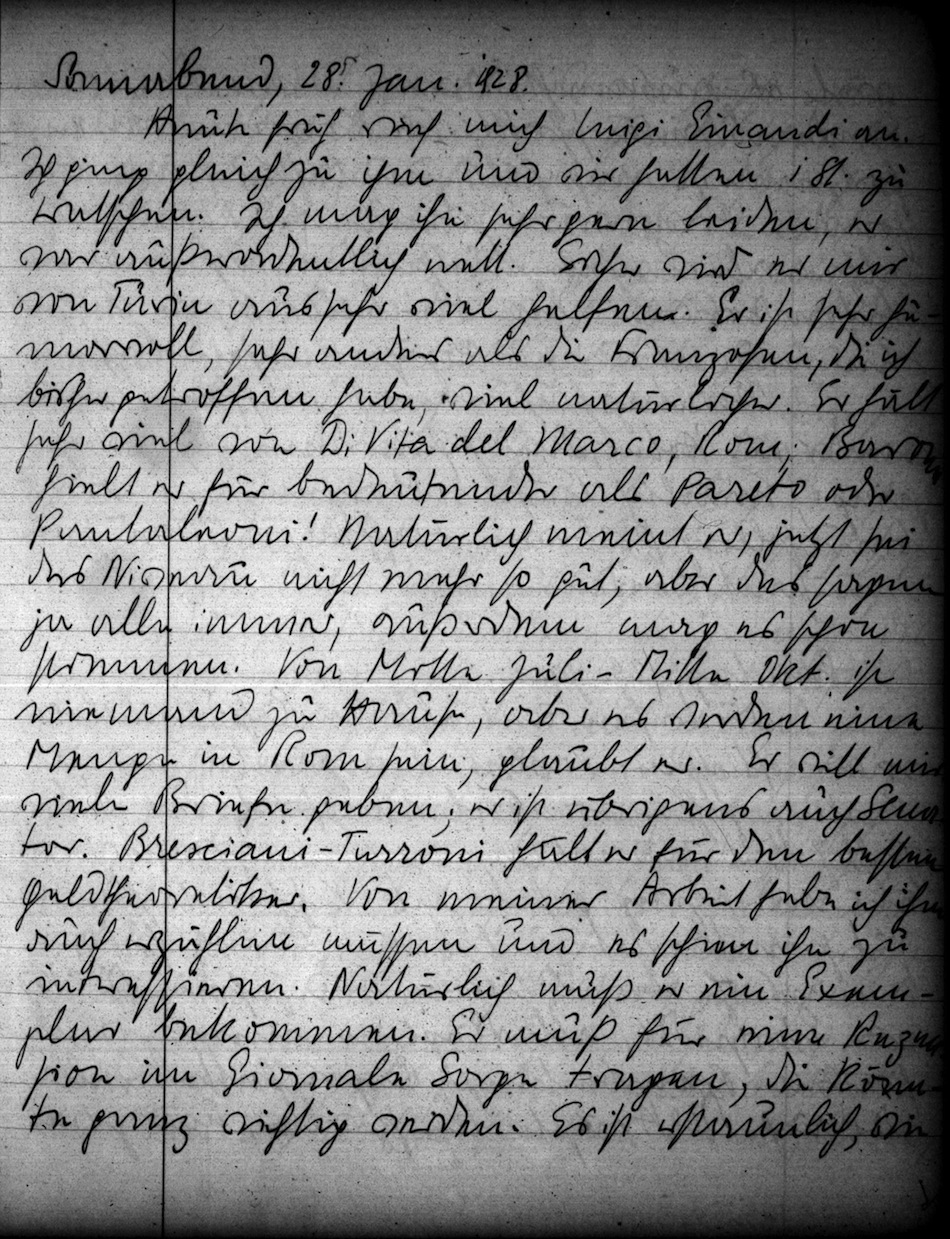 Sonnabend, 28. Jan. 1928.
Heute früh rief mich Luigi Einaudi an.
Ich ging gleich zu ihm und wir hatten 1 St. zu
tratschen. Ich mag ihn sehr gern leiden, er
war außerordentlich nett. Sicher wird er mir
von Turin aus sehr viel helfen. Er ist sehr hu-
morvoll, sehr anders als die Franzosen, die ich
bisher getroffen habe, viel natürlicher. Er hält
sehr viel von Di Vita del Marco, Rom; Barone
hielt er für bedeutender als Pareto oder
Pantaleoni! Natürlich meint er, jetzt sei
das Niveau nicht mehr so gut, aber das sagen
ja alle immer, außerdem mag es schon
stimmen. Von Mitte Juli – Mitte Okt. ist
niemand zu Hause, aber es werden eine
Menge in Rom sein, glaubt er. Er will mir
viele Briefe geben; er ist übrigens auch Sena-
tor. Bresciani-Turroni hält er für den besten
Geldtheoretiker. Von meiner Arbeit habe ich ihm
auch erzählen müssen und es schien ihn zu
interessieren. Natürlich muß er ein Exem-
plar bekommen. Er muß für eine Rezen-
sion im Giornale Sorge tragen, die könn-
te ganz wichtig werden. Es ist erstaunlich, wie